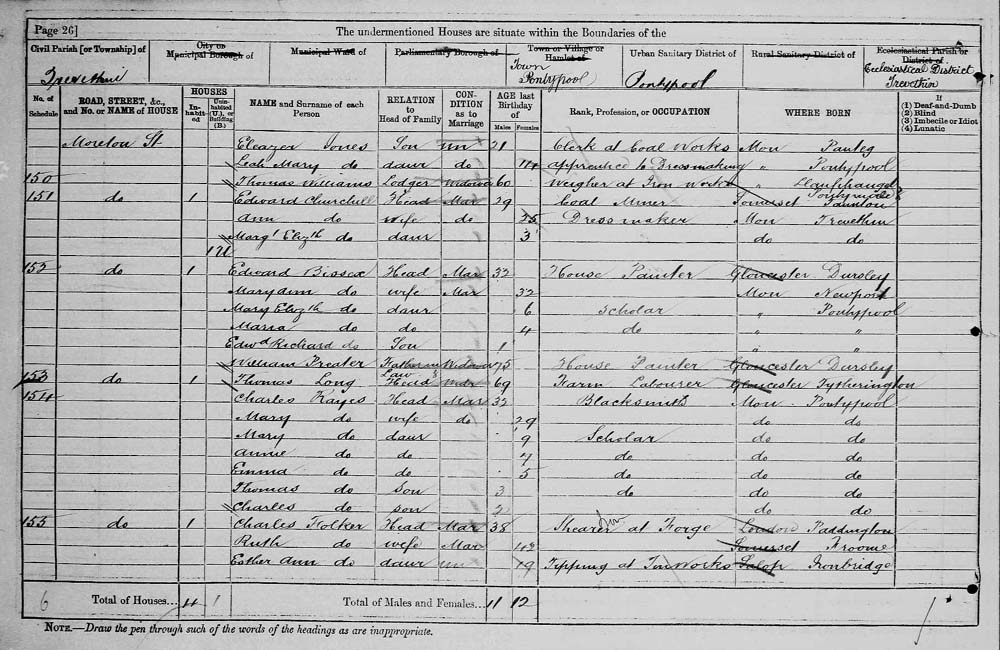 Page 26] The undermentioned Houses are situate within the Boundaries of the
Civil Parish [or Township] of City or Municipal Borough of Municipal Ward of Parliamentary Borough of Town or Village or Hamlet of Urban Sanitary District of Rural Sanitary District of Ecclesiastical Parish or District of
Trevethin Town Pontypool Pontypool Ecclesiastical District Trevethin
No. of Schedule ROAD, STREET, &c., and No. or NAME of HOUSE HOUSES In-habit-ed Unin-habited (U.), or Building (B.) NAME and Surname of each Person RELATION to Head of Family CON-DITION as to Marriage AGE last Birthday of Males Females Rank, Profession, or OCCUPATION WHERE BORN If (1) Deaf-and-Dumb (2) Blind (3) Imbecile or Idiot (4) Lunatic
Moreton St Eleazer Jones Son un 21 Clerk at Coal Works Mon Panteg
Leah Mary do daur do 14 apprentice to Dressmaking " Pontypool
150 Thomas Williams Lodger Widower 60 Weigher at Iron Works "
151 do 1 Edward Churchill Head Mar 29 Coal Miner Somerset Taunton
Ann do wife do 25 Dress maker Mon Trevethin
Margt Elizth do daur 3 do do
1U
152 do 1 Edward Bissex Head Mar 32 House Painter Gloucester Dursley
Maryann do wife Mar 32 Mon Newport
Mary Elizth do daur 6 Scholar " Pontypool
Maria do do 4 do " "
Edwd Richard do Son 1 " "
William Preater Father in Law Widower 75 House Painter Gloucester Dursley
153 do 1 Thomas Long Head Widr 69 Farm Labourer Gloucester Tytherington
154 Charles Kayes Head Mar 32 Blacksmith Mon Pontypool
Mary do wife do 29 do do
Mary do daur 9 Scholar do do
Annie do do 7 do do do
Emma do do 5 do do do
Thomas do son 3 do do do
Charles do son 2 do do
155 do 1 Charles Folker Head Mar 38 Shearer at Forge London Paddington
Ruth do wife Mar 42 Somerset Froome
Esther Ann do daur un 19 Tipping at Tin Works Salop Ironbridge
6 Total of Houses... 4 1 Total of Males and Females... 11 12
NOTE.—Draw the pen through such of the words of the headings as are inappropriate.